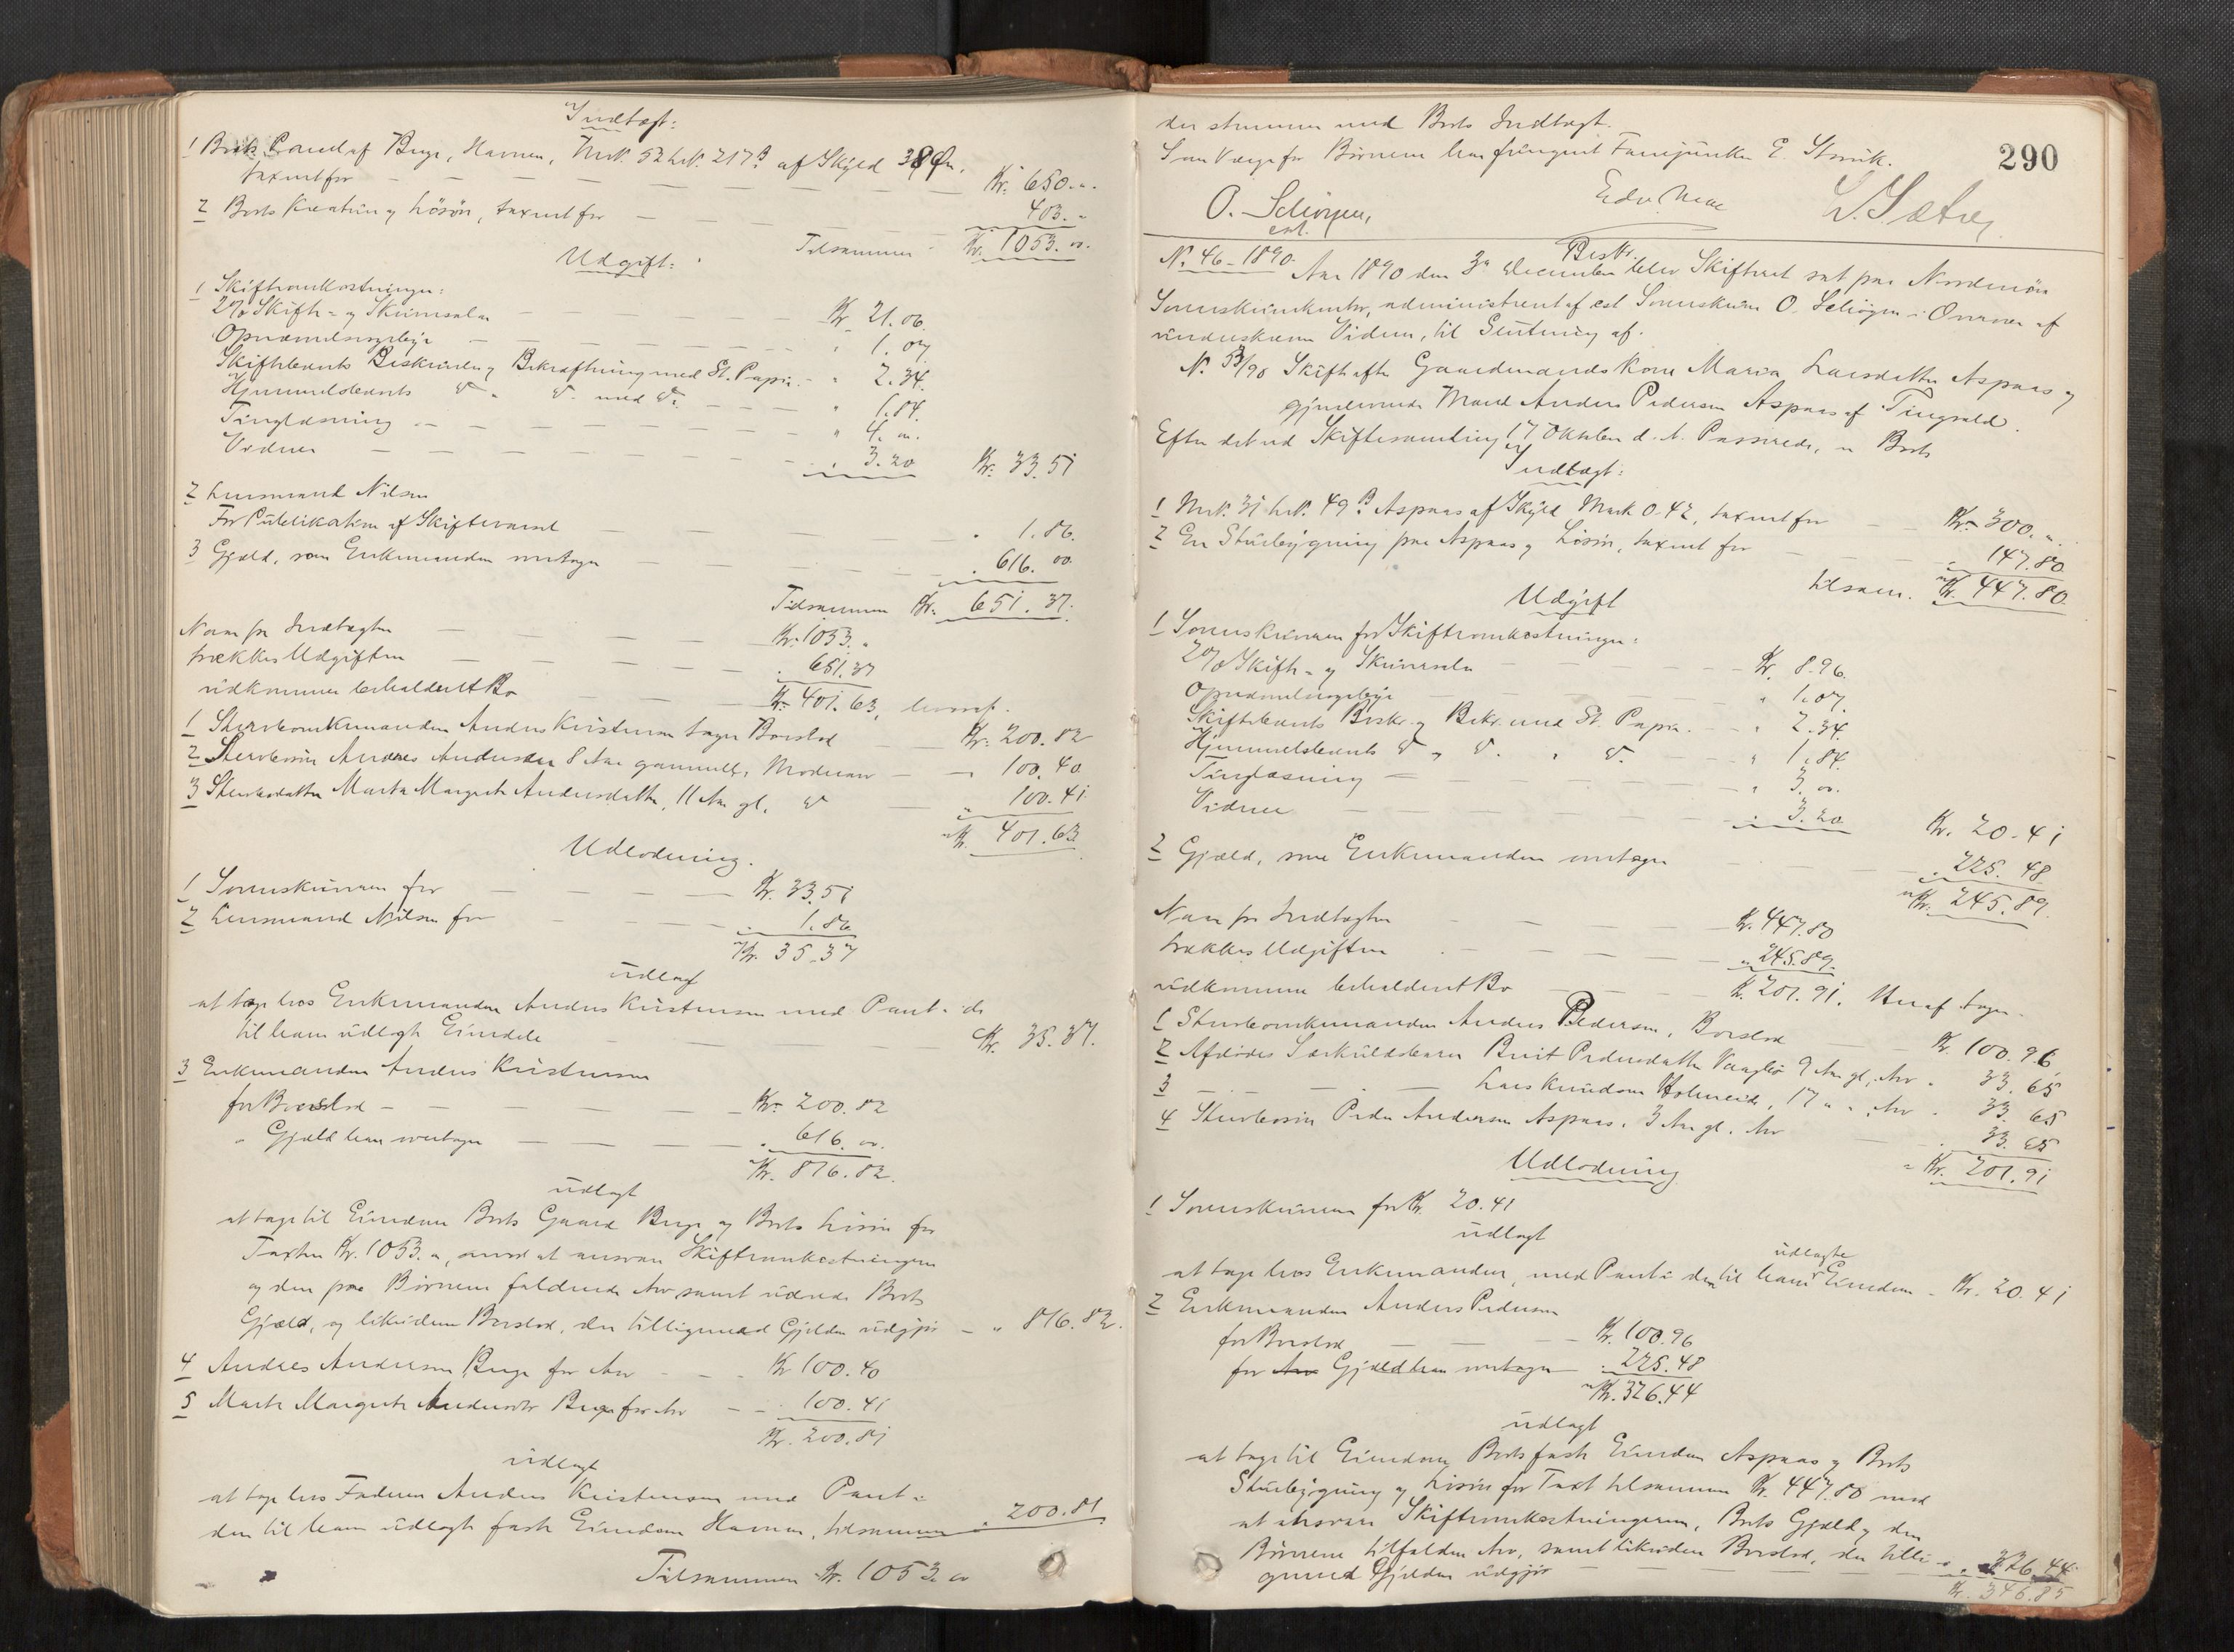 Indtægt:
1 Boets Gaard af Buge, Havnen, Mrk. 52 Lrk. 217 B af Skyld 38 Øre.
taxeret for — — — Kr. 650. "
2 Boets Kreatur og Løsøre, taxeret for — 403. "
Tilsammen Kr. 1053. 00.
Udgift:
1 Skifteomkostninger:
2% Skifte- og Skriversalær — Kr. 21.06.
Opnævnelsesgebyr — " 1.07
Skiftebrevets Beskrivelse og Bekræftning med St. Papir — " 2.34.
Hjemmelsbrevets d° " d° med d°. — " 1.84.
Tinglæsning — " 4. 00.
Vidner — " 3.20 Kr. 33.51
2 Lensmand Nilsen
For Publikation af Skiftevarsel — " 1.86.
3 Gjæld, som Enkemanden overtager — " 616. 00
Tilsammen Kr. 651. 37.
Naar fra Indtægten — Kr. 1053. "
trækkes Udgiften — " 651.37
udkommer beholdent Bo — Kr. 401.63, hvoraf.
1 Stervboenkemanden Anders Kristensen tager Boeslod Kr. 200.82
2 Stervbosøn Andreas Andersen 8 Aar gammel, Modrearv — " 100.40
3 Stervbodatter Marta Margrete Andersdatter, 11 Aar gl. d° " 100.41
Kr. 401.63
Udlodning.
1 Sorenskriveren for — Kr. 33.51
2 Lensmand Nilsen for — " 1.86
Kr. 35.37
udlagt
at tage hos Enkemanden Anders Kristensen med Pant i de
til ham udlagte Eiendele — Kr. 35.37.
3 Enkemanden Anders Kristensen
for Boeslod — Kr. 200.82
" Gjæld han overtager — " 616. 00.
Kr. 816.82.
udlagt
at tage til Eiendom Boets Gaard Buge og Boets Løsøre for
Taxten Kr. 1053. ", mod at ansvare Skifteomkostningerne
og den paa Børnene faldende Arv samt udrede Boets
Gjæld, og likvidere Boeslod, der tilligemed Gjælden udgjør — " 816.82.
4 Andreas Andersen Buge for Arv — Kr 100.40
5 Marta Margrete Andersdtr Buge for Arv — " 100.41
Kr. 200.81
udlagt
at tage hos Faderen Anders Kristensen med Pant i
den til ham udlagte faste Eiendom Havnen, tilsammen " 200.81
Tilsammen Kr. 1053. 00
290
der stemmer med Boets Indtægt.
Som Værge for Børnene har fungeret Fanejunker E. Strøm.
O. Schiørn,
cst.
L. Sætre
Beskr.
No 46-1890. Aar 1890 den 3e December blev Skifteret sat paa Nordmøre
Sorenskriverkontor, administreret af cst Sorenskriver O. Schiørn i Overvær af
underskrevne Vidner, til Slutning af.
No 53/90 Skifte efter Gaardmandskone Maria Larsdatter Aspaas og
gjenlevende Mand Anders Pedersen Aspaas af Tingvold.
Efter det ved Skiftesamling 17 Oktober d. A. Passerede, er Boets
Indtægt:
1 Mrk. 31 Lrk. 49 B Aspaas af Skyld Mark 0-42, taxeret for — Kr. 300. ".
2 En Stuebygning paa Aspaas og Løsøre, taxeret for — " 147.80
tilsam. Kr. 447.80
Udgift
1 Sorenskriveren for Skifteomkostninger:
2% Skifte- og Skriversalær — Kr. 8.96.
Opnævnelsesgebyr — " 1.07.
Skiftebrevets Beskr. og Bekr. med St. Papir. — " 2.34.
Hjemmelsbrevets d° " d°. " d°. " 1.84.
Tinglæsning — " 3. 00.
Vidner — " 3.20 Kr. 20.41
2 Gjæld, som Enkemanden overtager — " 225.48
Kr. 245.89.
Naar fra Indtægten — Kr. 447.80
trækkes Udgiften — " 245.89.
udkommer beholdent Bo — Kr. 201.91. Heraf tager.
1 Stervboenkemanden Anders Pedersen, Boeslod Kr. 100.96
2 Afdødes Særkuldsbarn Berit Pedersdatter Vaagbø 9 Aar gl. Arv " 33.65
3 — — — Lars Knudsen Holmeide, 17 " " , Arv " 33.65
4 Stervbosøn Peder Andersen Aspaas, 3 Aar gl. Arv " 33.65
Kr. 201.91
Udlodning
1 Sorenskriveren for Kr. 20.41
udlagt
at tage hos Enkemanden, med Pant i den til ham udlagte Eiendom — Kr. 20.41
2 Enkemanden Anders Pedersen
for Boeslod — Kr. 100.96
for Arv Gjæld han overtager — " 225.48
Kr. 326.44
udlagt
at tage til Eiendom Boets faste Eiendom Aspaas og Boets
Stuebygning og Løsøre for Taxt tilsammen Kr. 447.80 mod
at ansvare Skifteomkostningerne, Boets Gjæld og den
Børnene tilfaldne Arv, samt likvidere Boeslod, der tilli-
gemed Gjælden udgjør — " 326.44
Kr. 346.85